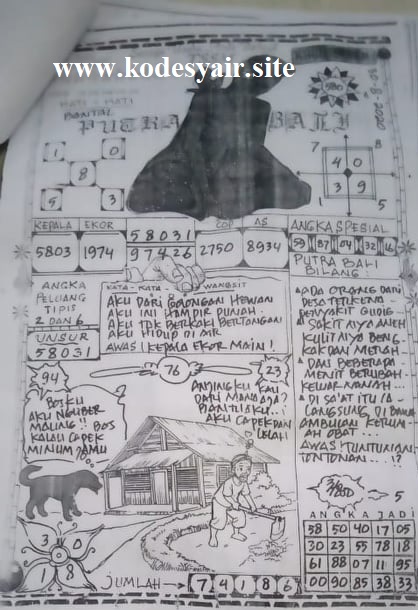 www.kodesyair.site
30-8-2020
HATI - HATI
BANTAL
PUTRA BALI
1 0
8
5 3
7 8
4 0
3 9
1 5
KEPALA EKOR
5803 1974
58031
97426
COP AS
2750 8934
ANGKA SPESIAL
59 87 04 32 16
ANGKA
PELUANG
TIPIS
2 DAN 6
UNSUR
58031
KATA - KATA WANGSIT
AKU DARI GOLONGAN HEWAN
AKU INI HAMPIR PUNAH
AKU TDK BERKAKI BERTONGAN
AKU HIDUP DI AIR
AWAS! KEPALA EKOR MAIN!
PUTRA BALI
BILANG:
ADA ORANG DARI
DESA TETIKENA
PENYAKIT GUDIG
SAKITNYA ANEH
KULITNYA BENG
KAK DAN MERAH
DAN BEBERAPA
MENIT BERUBAH
KELUAR NANAH...
DI SAAT ITU IA
LANGSUNG DI BAWA
AMBULAN KERUM
AH OBAT...
AWAS! TUNTUNAN
TONTONAN...!?
94
76
23
BOSKU
AKU NGUBER
MALING!! BOS
KALAU CAPEK
MINUM JAMU
ANJINGKU KAU
DARI MANA AJA?
BIANTILAKU..!
AKU CAPEK DAN
LELAH
3 0
1 8
JUMLAH → 74186
5
ANGKA JADI
58 50 40 17 05
30 23 55 78 18
61 88 07 11 95
00 90 85 38 33